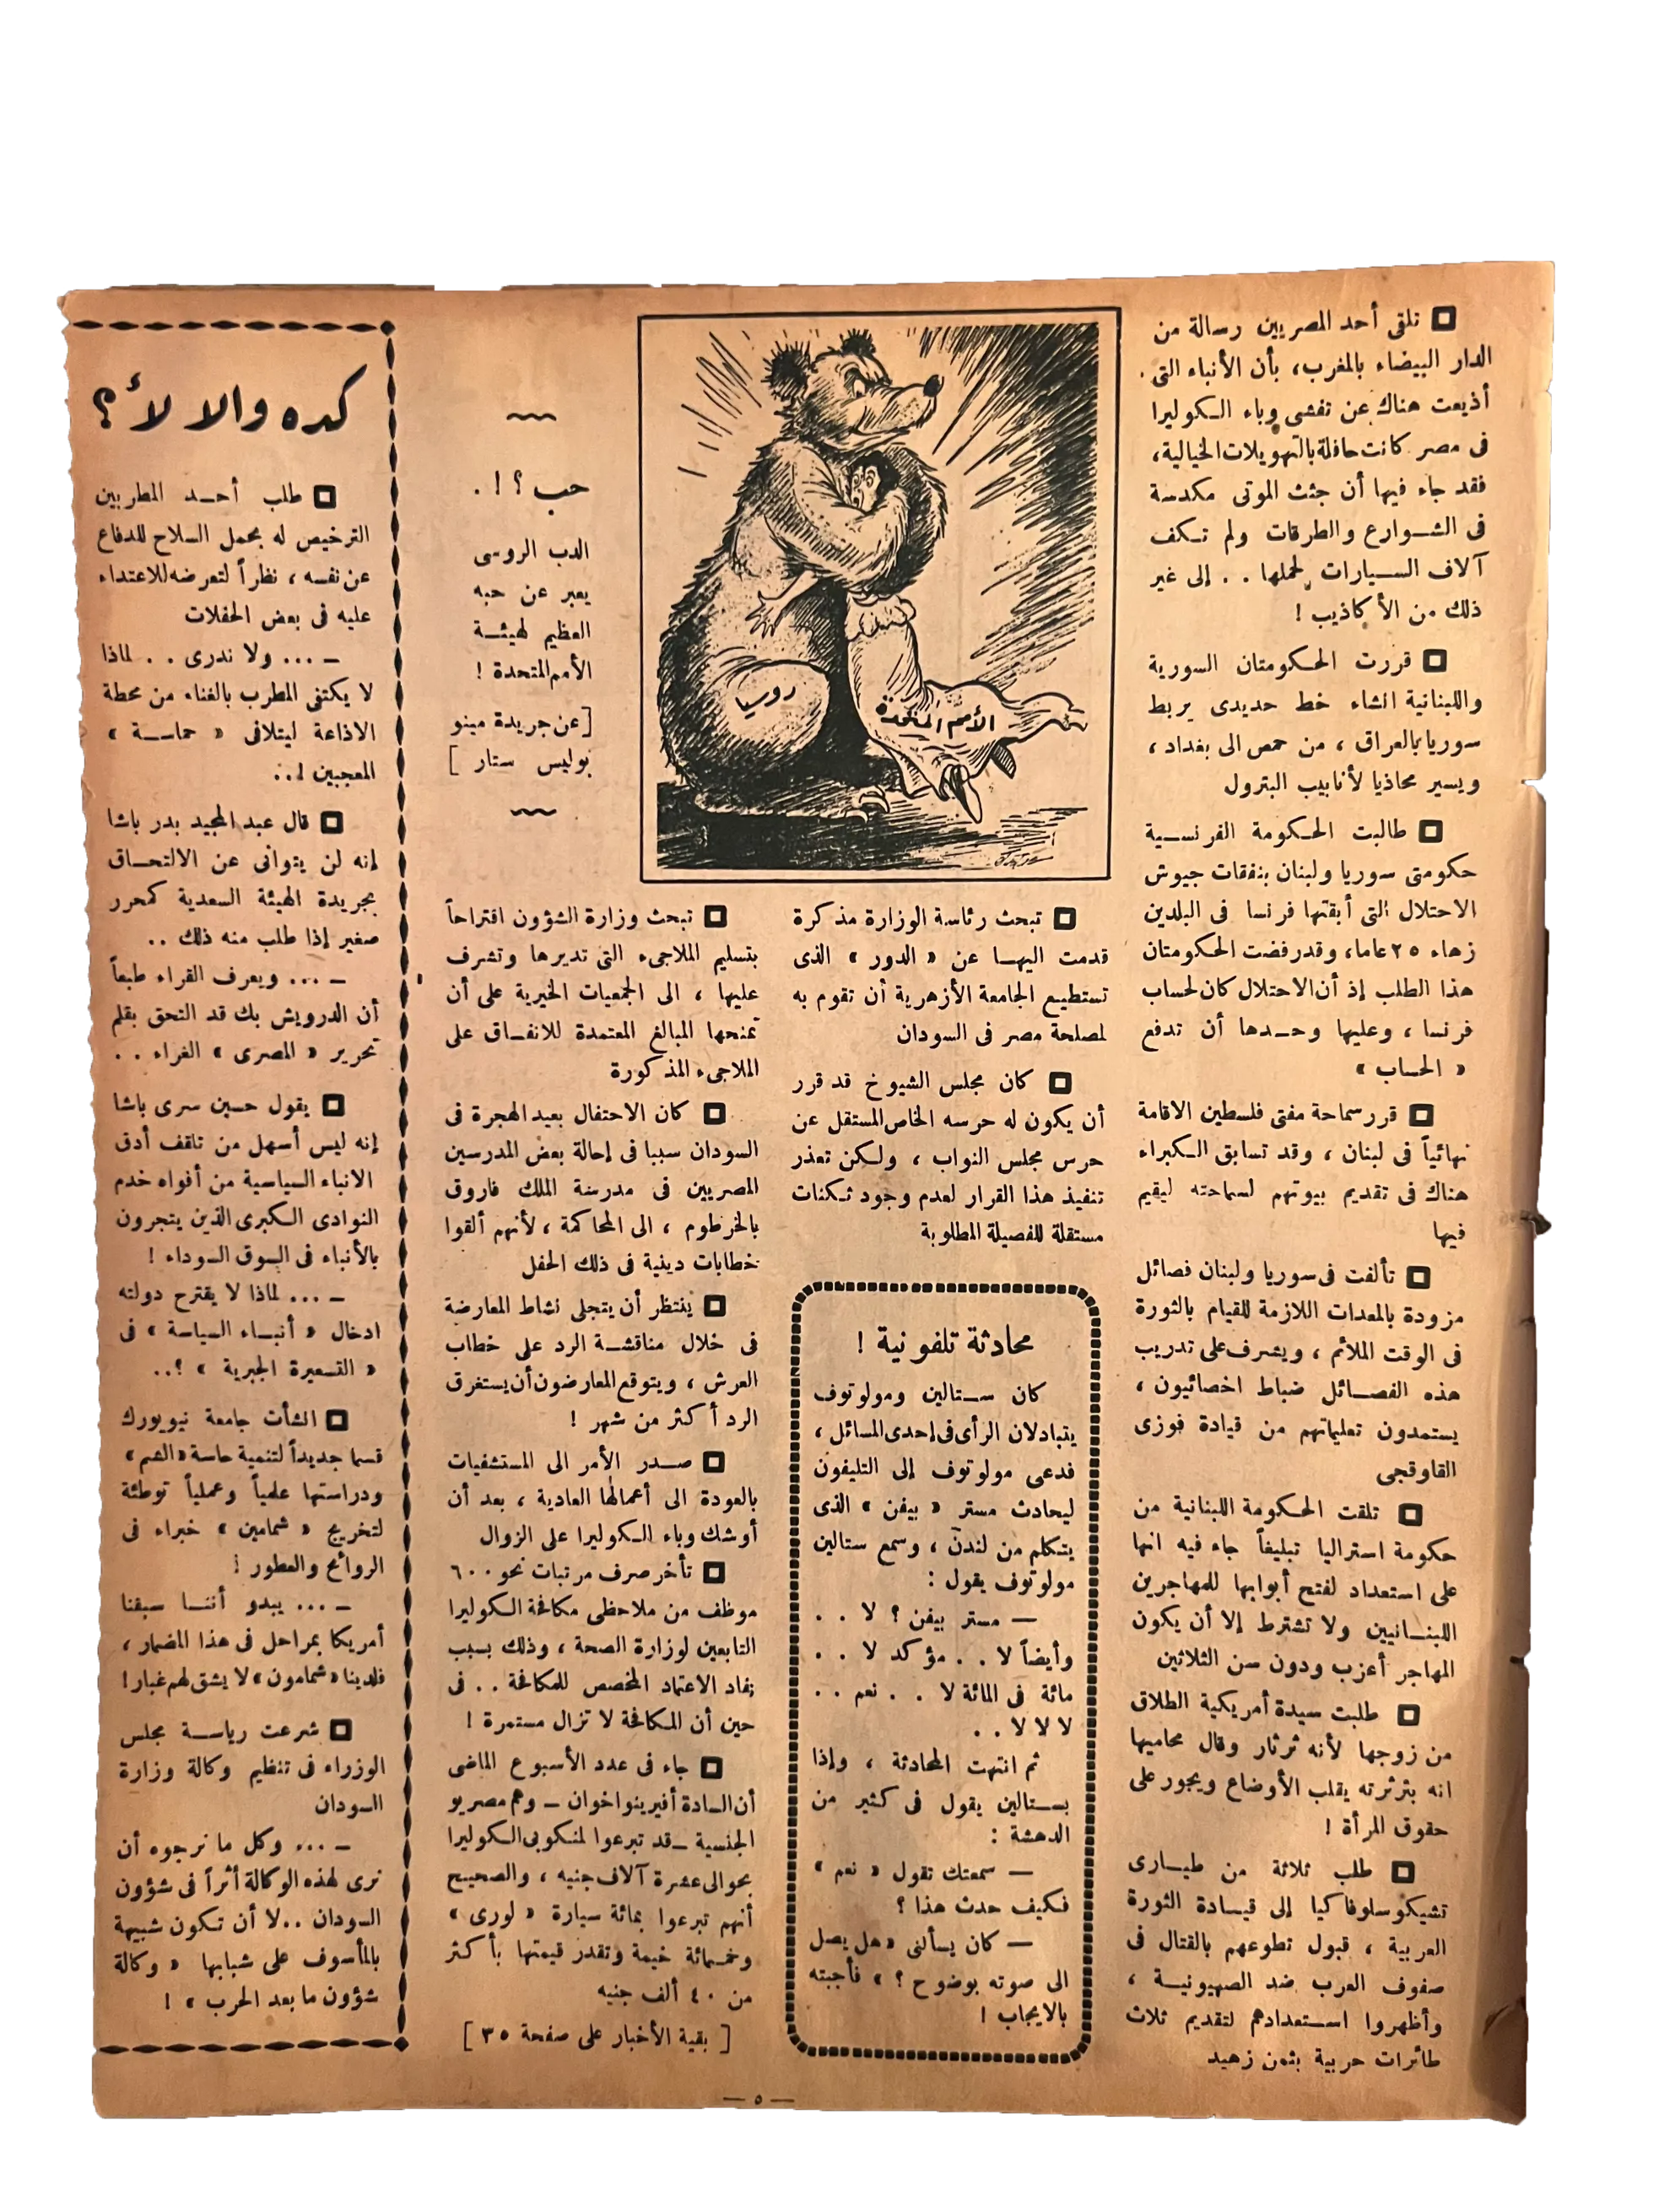 تلقى أحد المصريين رسالة من
الدار البيضاء بالمغرب، بأن الأنباء التى
أذيعت هناك عن تفشى وباء الكوليرا
فى مصر كانت حافلة بالتهويلات الخيالية،
فقد جاء فيها أن جثث الموتى مكدسة
فى الشوارع والطرقات ولم تكف
آلاف السيارات لحملها . . إلى غير
ذلك من الأكاذيب !
قررت الحكومتان السورية
واللبنانية انشاء خط حديدى يربط
سوريا بالعراق ، من حمص الى بغداد ،
ويسير محاذيا لأنابيب البترول
طالبت الحكومة الفرنسية
حكومتى سوريا ولبنان بنفقات جيوش
الاحتلال التى أبقتها فرنسا فى البلدين
زهاء ٢٥ عاما، وقد رفضت الحكومتان
هذا الطلب إذ أن الاحتلال كان لحساب
فرنسا ، وعليها وحدها أن تدفع
« الحساب »
قرر سماحة مفتى فلسطين الاقامة
نهائياً فى لبنان ، وقد تسابق الكبراء
هناك فى تقديم بيوتهم لسماحته ليقيم
فيها
تألفت فى سوريا ولبنان فصائل
مزودة بالمعدات اللازمة للقيام بالثورة
فى الوقت الملائم ، ويشرف على تدريب
هذه الفصائل ضباط اخصائيون ،
يستمدون تعليماتهم من قيادة فوزى
القاوقجى
تلقت الحكومة اللبنانية من
حكومة استراليا تبليغاً جاء فيه انها
على استعداد لفتح أبوابها للمهاجرين
اللبنانيين ولا تشترط إلا أن يكون
المهاجر أعزب ودون سن الثلاثين
طلبت سيدة أمريكية الطلاق
من زوجها لأنه ثرثار وقال محاميها
انه بثرثرته يقلب الأوضاع ويجور على
حقوق المرأة !
طلب ثلاثة من طيارى
تشيكوسلوفاكيا إلى قيادة الثورة
العربية ، قبول تطوعهم بالقتال فى
صفوف العرب ضد الصهيونية ،
وأظهروا استعدادهم لتقديم ثلاث
طائرات حربية بثمن زهيد
روسيا
الأمم المتحدة
حب ؟ ! .
الدب الروسى
يعبر عن حبه
العظيم لهيئة
الأمم المتحدة !
[ عن جريدة مينو
بوليس ستار ]
تبحث رئاسة الوزارة مذكرة
قدمت اليها عن « الدور » الذى
تستطيع الجامعة الأزهرية أن تقوم به
لمصلحة مصر فى السودان
كان مجلس الشيوخ قد قرر
أن يكون له حرسه الخاص المستقل عن
حرس مجلس النواب ، ولكن تعذر
تنفيذ هذا القرار لعدم وجود ثكنات
مستقلة للفصيلة المطلوبة
محادثة تلفونية !
كان ستالين ومولوتوف
يتبادلان الرأى فى إحدى المسائل ،
فدعى مولوتوف إلى التليفون
ليحادث مستر « بيفن » الذى
يتكلم من لندن ، وسمع ستالين
مولوتوف يقول :
— مستر بيفن ؟ لا . .
وأيضاً لا . . مؤكد لا . .
مائة فى المائة لا . . نعم . .
لا لا لا . .
ثم انتهت المحادثة ، وإذا
بستالين يقول فى كثير من
الدهشة :
— سمعتك تقول « نعم »
فكيف حدث هذا ؟
— كان يسألنى « هل يصل
الى صوته بوضوح ؟ » فأجبته
بالايجاب !
تبحث وزارة الشؤون اقتراحاً
بتسليم الملاجىء التى تديرها وتشرف
عليها ، الى الجمعيات الخيرية على أن
تمنحها المبالغ المعتمدة للانفاق على
الملاجىء المذكورة
كان الاحتفال بعيد الهجرة فى
السودان سببا فى إحالة بعض المدرسين
المصريين فى مدرسة الملك فاروق
بالخرطوم ، الى المحاكمة ، لأنهم ألقوا
خطابات دينية فى ذلك الحفل
ينتظر أن يتجلى نشاط المعارضة
فى خلال مناقشة الرد على خطاب
العرش ، ويتوقع المعارضون أن يستغرق
الرد أكثر من شهر !
صدر الأمر الى المستشفيات
بالعودة الى أعمالها العادية ، بعد أن
أوشك وباء الكوليرا على الزوال
تأخر صرف مرتبات نحو ٦٠٠
موظف من ملاحظى مكافحة الكوليرا
التابعين لوزارة الصحة ، وذلك بسبب
نفاد الاعتماد المخصص للمكافحة . . فى
حين أن المكافحة لا تزال مستمرة !
جاء فى عدد الأسبوع الماضى
أن السادة أفيرينو اخوان — وهم مصريو
الجنسية — قد تبرعوا لمنكوبى الكوليرا
بحوالى عشرة آلاف جنيه ، والصحيح
أنهم تبرعوا بمائة سيارة « لورى »
وخمسمائة خيمة وتقدر قيمتها بأكثر
من ٤٠ ألف جنيه
[ بقية الأخبار على صفحة ٣٥ ]
كده والا لأ؟
طلب أحد المطربين
الترخيص له بحمل السلاح للدفاع
عن نفسه ، نظراً لتعرضه للاعتداء
عليه فى بعض الحفلات
— ... ولا ندرى . . لماذا
لا يكتفى المطرب بالغناء من محطة
الاذاعة ليتلافى « حماسة »
المعجبين !..
قال عبد المجيد بدر باشا
إنه لن يتوانى عن الالتحاق
بجريدة الهيئة السعدية كمحرر
صغير إذا طلب منه ذلك ..
— ... ويعرف القراء طبعاً
أن الدرويش بك قد التحق بقلم
تحرير « المصرى » الغراء . .
يقول حسين سرى باشا
إنه ليس أسهل من تلقف أدق
الانباء السياسية من أفواه خدم
النوادى الكبرى الذين يتجرون
بالأنباء فى السوق السوداء !
— ... لماذا لا يقترح دولته
ادخال « أنباء السياسة » فى
« التسعيرة الجبرية » ؟..
انشأت جامعة نيويورك
قسما جديداً لتنمية حاسة « الشم »
ودراستها علمياً وعملياً توطئة
لتخريج « شمامين » خبراء فى
الروائح والعطور !
— ... يبدو أننا سبقنا
أمريكا بمراحل فى هذا المضمار ،
فلدينا « شمامون » لا يشق لهم غبار !
شرعت رياسة مجلس
الوزراء فى تنظيم وكالة وزارة
السودان
— ... وكل ما نرجوه أن
نرى لهذه الوكالة أثراً فى شؤون
السودان ..لا أن تكون شبيهة
بالمأسوف على شبابها « وكالة
شؤون ما بعد الحرب » !
— ٥ —